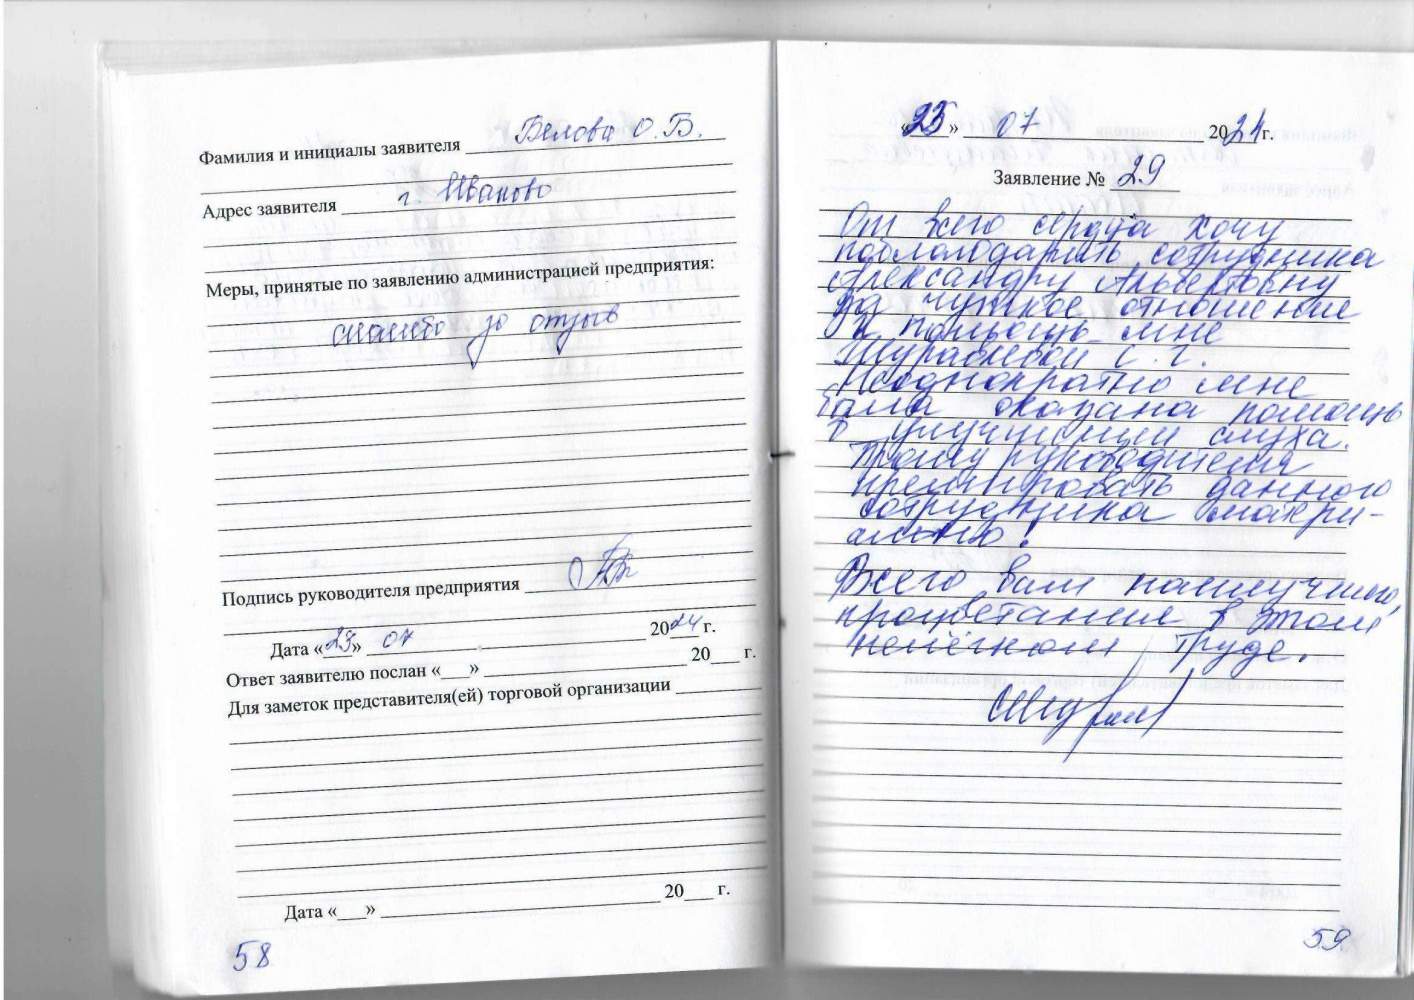 Фамилия и инициалы заявителя Белова О.Б.
Адрес заявителя г. Иваново
Меры, принятые по заявлению администрацией предприятия:
спасибо за отзыв
Подпись руководителя предприятия
Дата «23» 07 2024 г.
Ответ заявителю послан «___» 20___ г.
Для заметок представителя(ей) торговой организации
Дата «___» 20___ г.
58
«23» 07 2024г.
Заявление № 29
От всего сердца хочу
поблагодарить сотрудника
Александру Альбертовну
за чуткое отношение
и помощь мне
С. Г.
Неоднократно мне
была оказана помощь
в улучшении слуха.
Прошу руководителя
премировать данного
сотрудника матери-
ально!
Всего вам наилучшего,
процветание в этом
нелёгком труде.
59